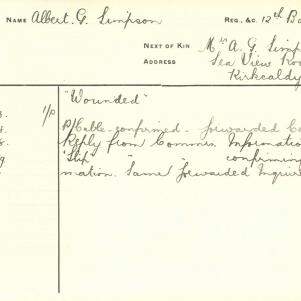 NAME Albert. G. Simpson REG., &C. 12th Ba
NEXT OF KIN Mrs A. G. Simp
ADDRESS Sea View Ro
Kirkcaldy
"Wounded"
1/p P/Cable confirmed - forwarded Ca
Reply from Commis. Informatio
9 "Slip" " - " confirming
mation. Same forwarded Inquir